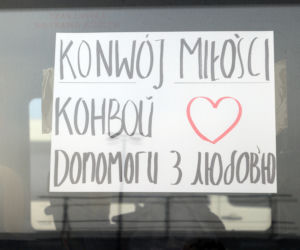 KONWÓJ MIŁOŚCI
КОНВОЙ
ДОПОМОГИ З ЛЮБОВ'Ю